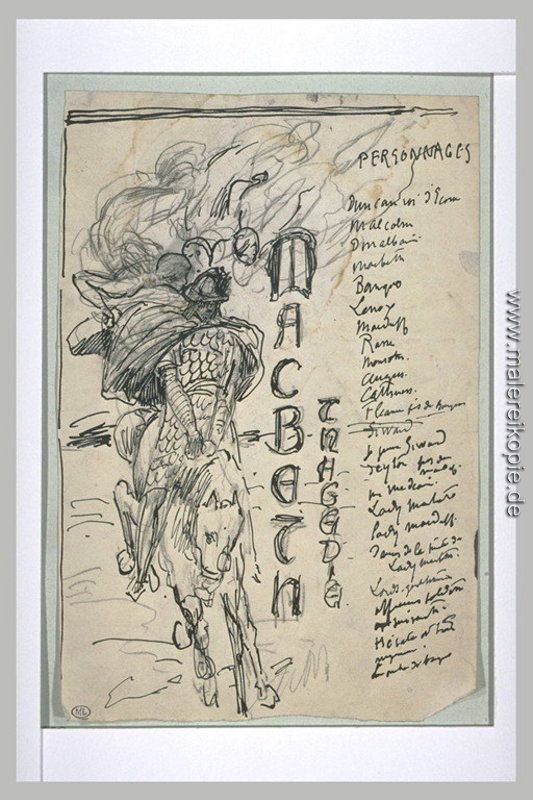 PERSONNAGES
Duncan roi d'Ecosse
Malcolm
Donalbain
Macbeth
Banquo
Lenox
Macduff
Rosse
Menteth
Angus
Cathness
Fleance fils de Banquo
Siward
Le jeune Siward
Seyton
un medecin
Lady Macbeth
Lady Macduff
Lady Macbeth
Lords
officiers soldats
Hécate et trois
MACBETH
TRAGEDIE
ML
www.malereikopie.de